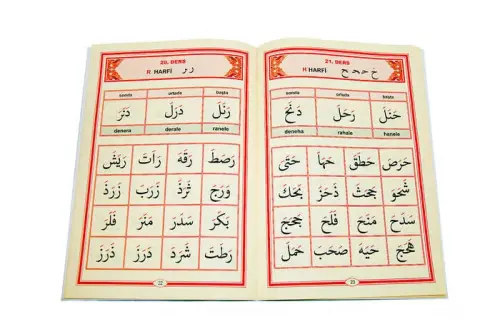 20. DERS
R HARFİ ر ر
sonda ortada başta
دَنَرَ دَرَلَ رَنَلَ
denera derale ranele
رَصَطَ رَقَهَ رَاتَ رَيَشَ
وَرَجَ ثَرَدَ زَرَبَ زَرَدَ
بَكَرَ سَدَرَ مَنَرَ فَلَرَ
رَطَتَ شَرَدَ دَرَزَ ذَرَزَ
22
21. DERS
H HARFİ
sonda ortada başta
دَنَحَ رَحَلَ حَنَلَ
deneha rahale hanele
حَرَصَ حَطَقَ حَتَى
شَحَوَ ذَحَزَ
سَدَحَ مَنَحَ فَلَحَ
حَيَهَ صَحَبَ حَمَلَ
23